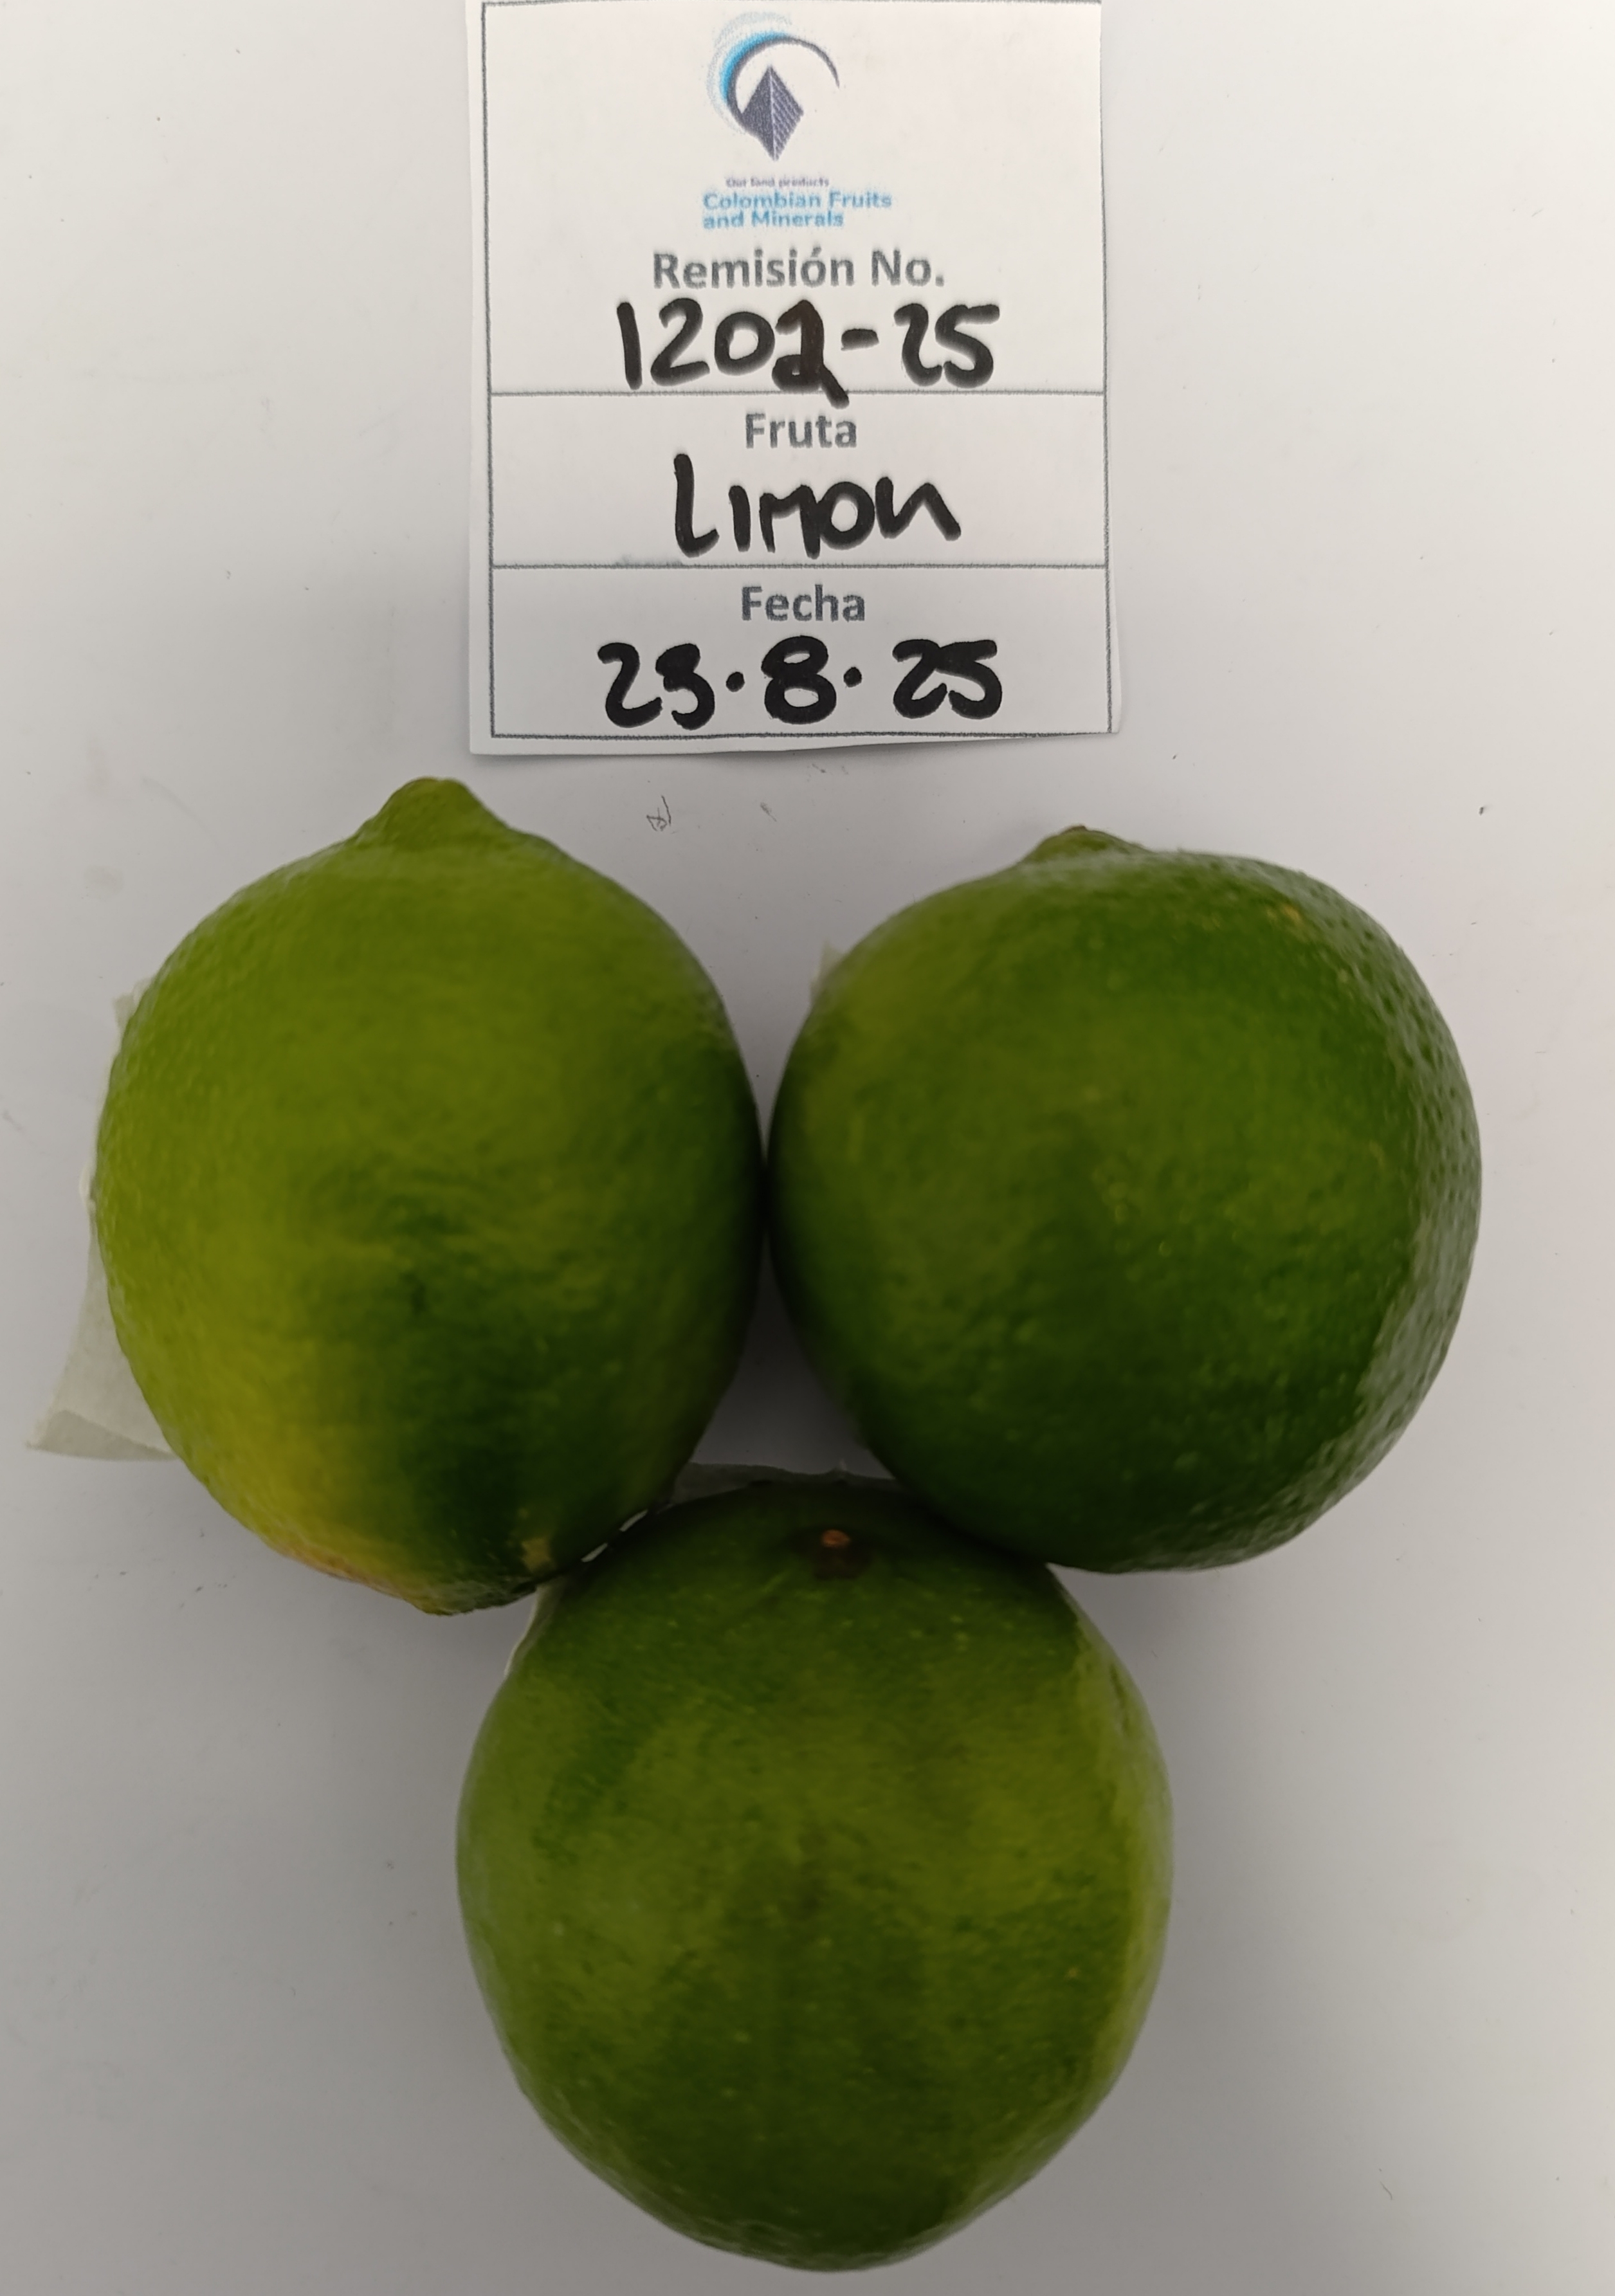 Our land products
Colombian Fruits
and Minerals
Remisión No.
1202-25
Fruta
Limon
Fecha
23.8.25